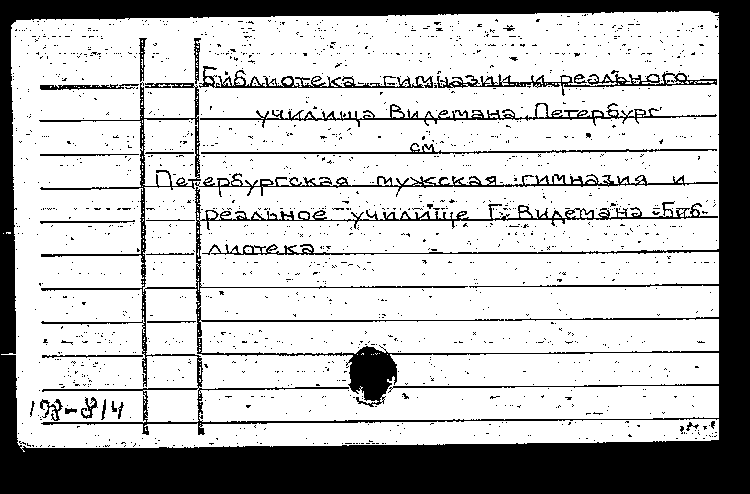 Библиотека гимназии и реального
училища Видемана, Петербург
см.
Петербургская мужская гимназия и
реальное училище Г. Видемана. Биб-
лиотека.
198-814